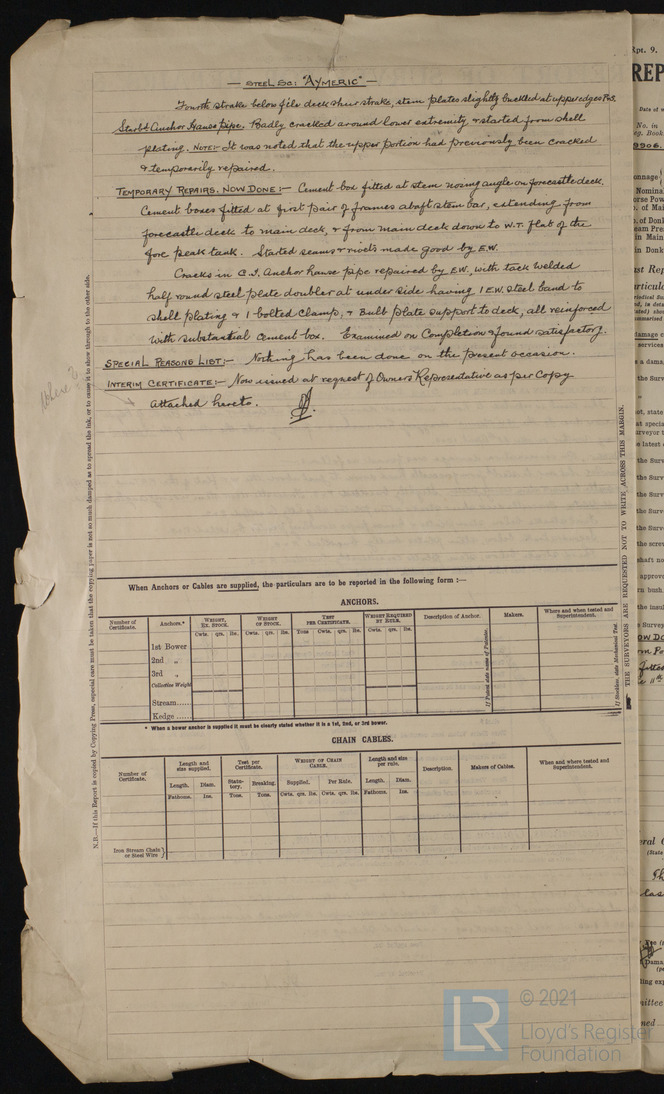 — STEEL SC: "AYMERIC" —
Fourth strake below f'cle deck sheer strake, stem plates slightly buckled at upper edges P&S.
Starbd Anchor Hause pipe. Badly cracked around lower extremity & started from shell
plating. NOTE:- It was noted that the upper portion had previously been cracked
& temporarily repaired.
TEMPORARY REPAIRS. NOW DONE:- Cement box fitted at stem nosing angle on forecastle deck.
Cement boxes fitted at first pair of frames abaft stem bar, extending from
forecastle deck to main deck, & from main deck down to W.T. flat of the
fore peak tank. Started seams & rivets made good by E.W.
Cracks in C.I. Anchor hause pipe repaired by E.W., with tack welded
half round steel plate doubler at under side having 1 E.W. steel band to
shell plating & 1 bolted clamp, & Bulb plate support to deck, all reinforced
with substantial cement box. Examined on Completion & found satisfactory.
SPECIAL REASONS LIST:- Nothing has been done on the present occasion.
INTERIM CERTIFICATE:- Now issued at request of Owners Representative as per Copy
attached hereto.
Where?
N.B.—If this Report is copied by Copying Press, special care must be taken that the copying paper is not so much damped as to spread the ink, or to cause it to show through to the other side.
THE SURVEYORS ARE REQUESTED NOT TO WRITE ACROSS THIS MARGIN.
When Anchors or Cables are supplied, the particulars are to be reported in the following form :—
ANCHORS.
Number of Certificate. Anchors.* WEIGHT, EX. STOCK. WEIGHT OF STOCK. TEST PER CERTIFICATE. WEIGHT REQUIRED BY RULE. Description of Anchor. Makers. Where and when tested and Superintendent.
Cwts. qrs. lbs. Cwts. qrs. lbs. Tons cwts. qrs. lbs. Cwts. qrs. lbs.
1st Bower
2nd „
3rd „
Collective Weight
Stream......
Kedge......
If Patent state name of Patentee.
If Stockless, state Mechanical Test.
* When a bower anchor is supplied it must be clearly stated whether it is a 1st, 2nd, or 3rd bower.
CHAIN CABLES.
Number of Certificate. Length and size supplied. Test per Certificate. WEIGHT OF CHAIN CABLE. Length and size per rule. Description. Makers of Cables. Where and when tested and Superintendent.
Length. Diam. Statutory. Breaking. Supplied. Per Rule. Length. Diam.
Fathoms. Ins. Tons. Tons. Cwts. qrs. lbs. Cwts. qrs. lbs. Fathoms. Ins.
Iron Stream Chain or Steel Wire }
Rpt. 9.
REP
LR
© 2021
Lloyd's Register
Foundation